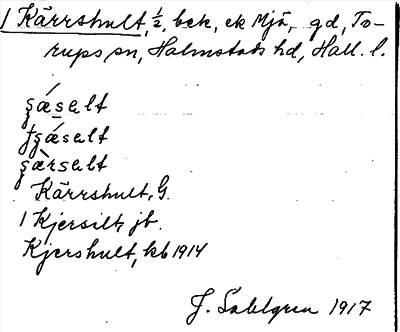 1 Kärrshult, 1/2, bek, ek Mjä, - gd, To-
rups sn, Halmstads hd, Hall. l.
Kärrshult, G.
1 Kjersilt, jb.
Kjershult, kb 1914
J. Sahlgren 1917